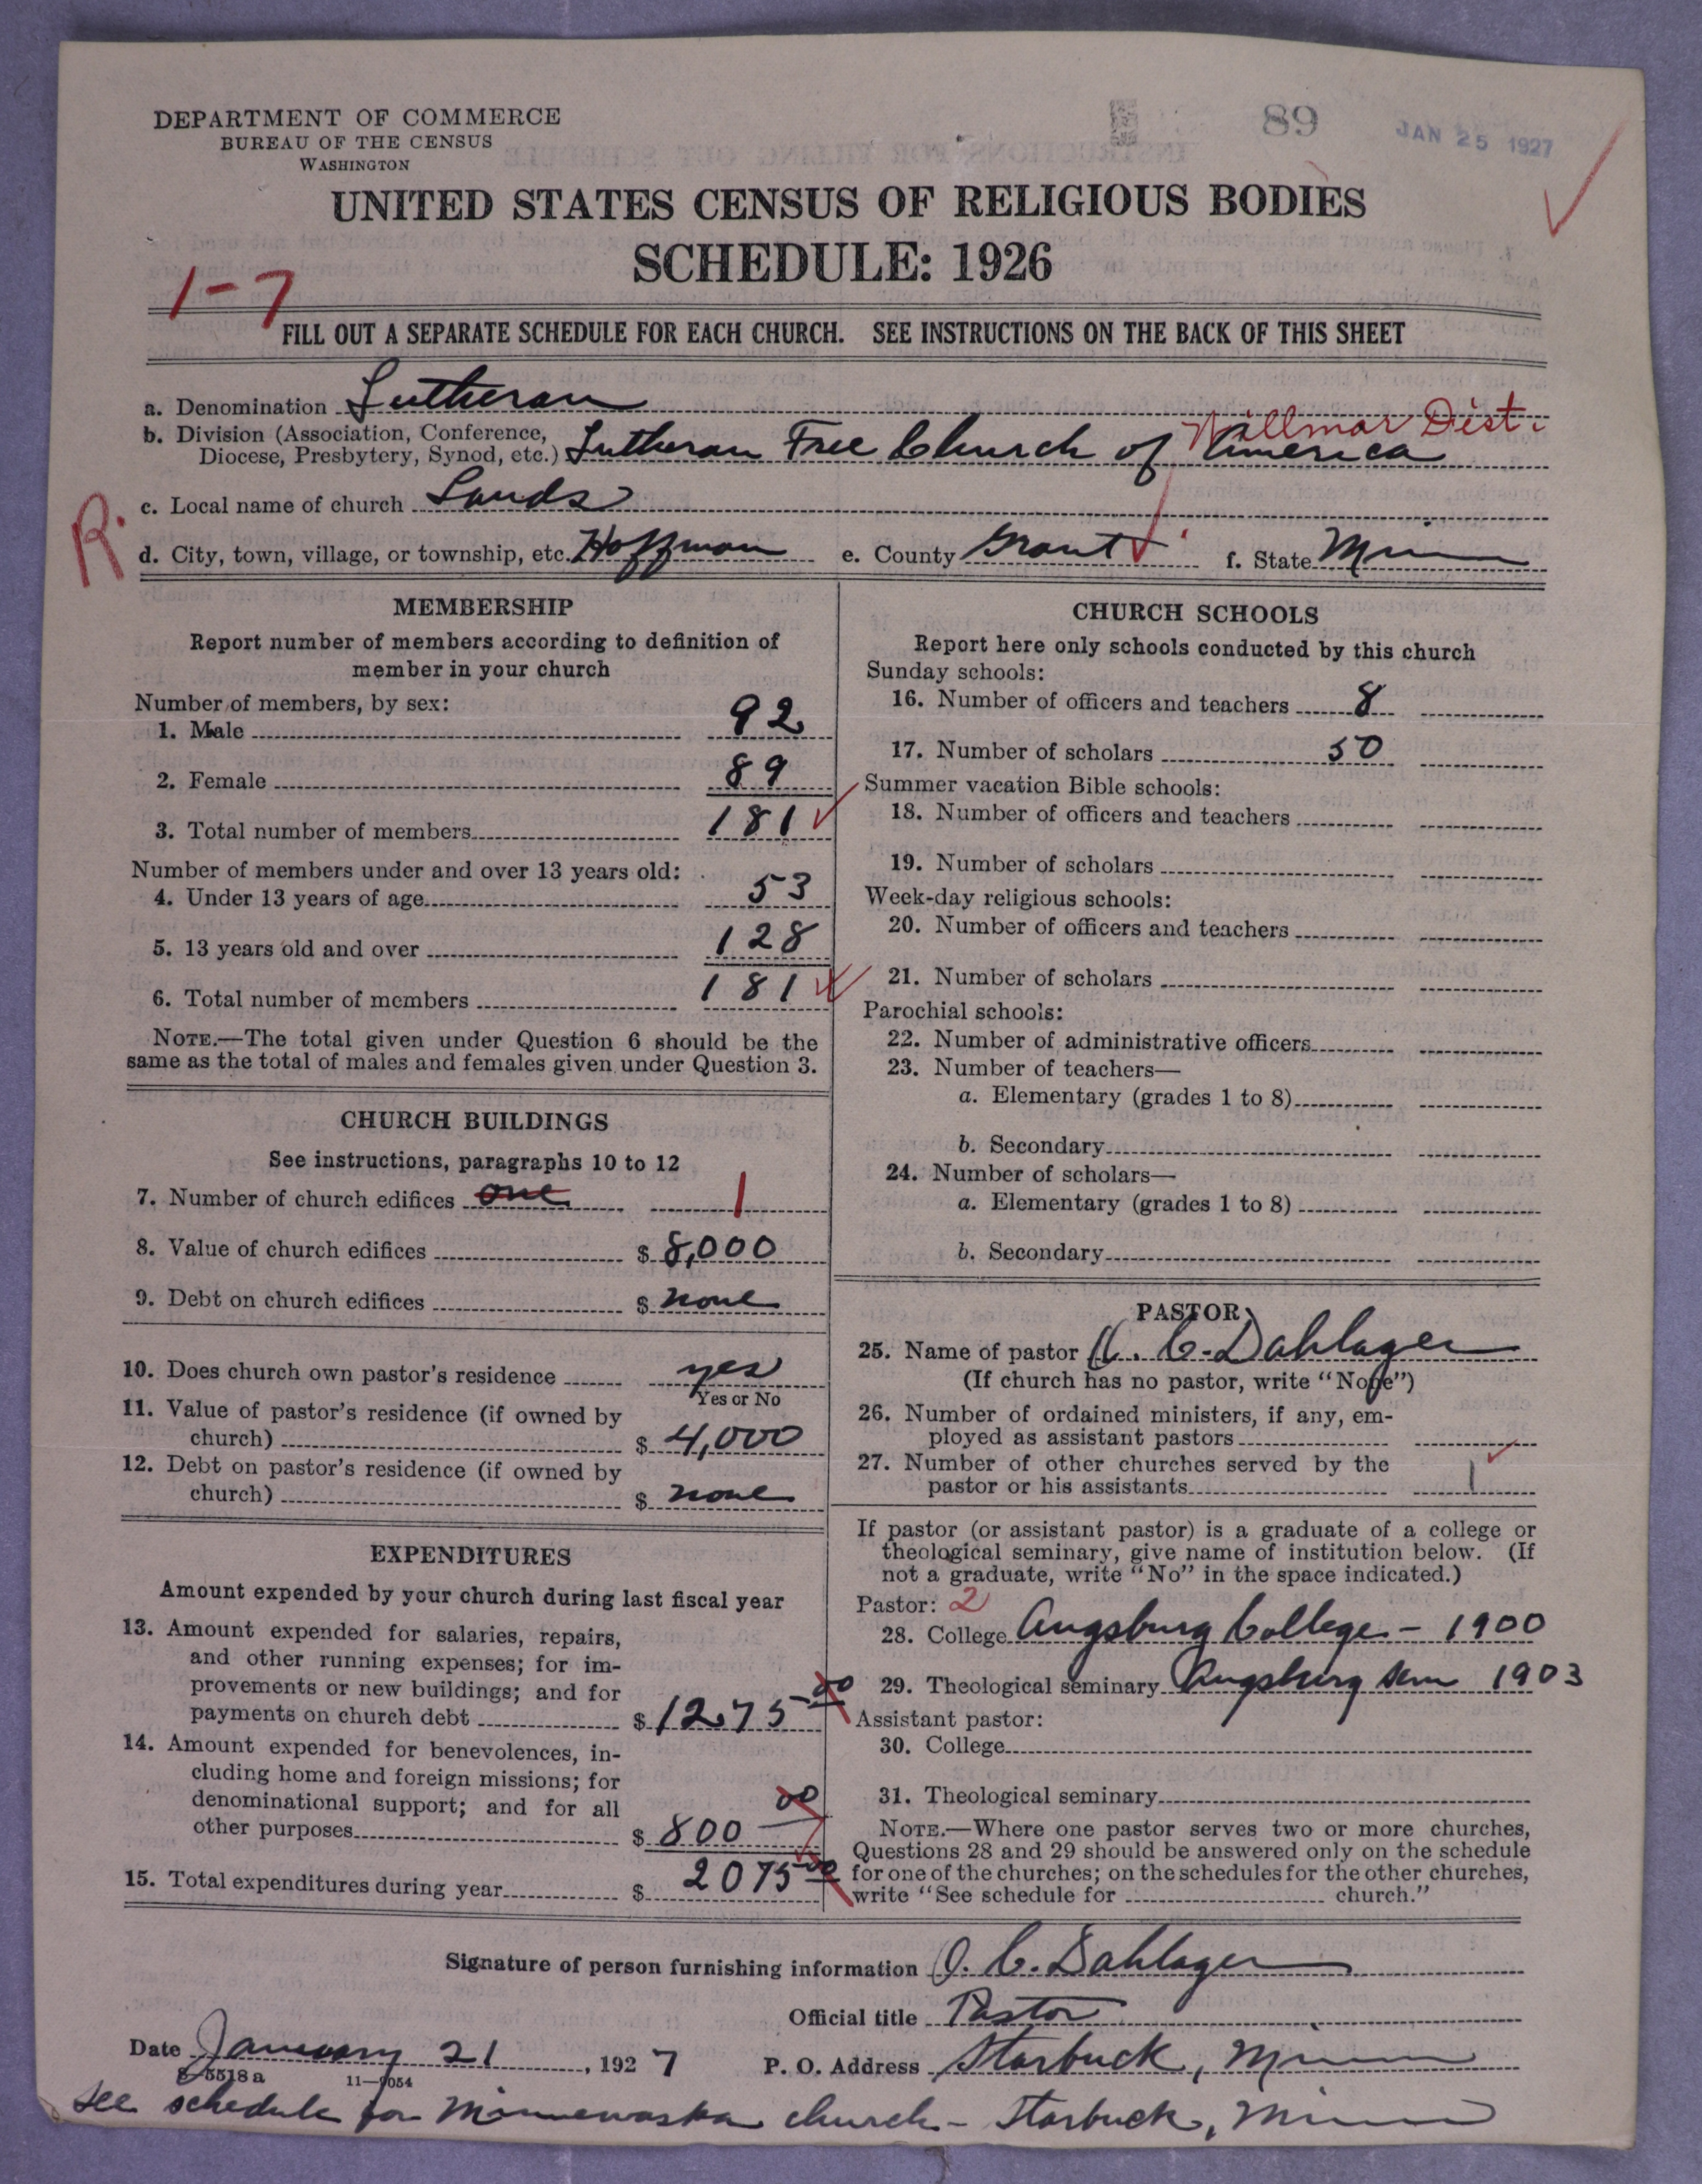 DEPARTMENT OF COMMERCE
BUREAU OF THE CENSUS
WASHINGTON
89
JAN 25 1927
UNITED STATES CENSUS OF RELIGIOUS BODIES
SCHEDULE: 1926
1-7
FILL OUT A SEPARATE SCHEDULE FOR EACH CHURCH. SEE INSTRUCTIONS ON THE BACK OF THIS SHEET
a. Denomination Lutheran
Willmar Dist.
b. Division (Association, Conference,
Diocese, Presbytery, Synod, etc.) Lutheran Free Church of America
c. Local name of church Lands
R.
d. City, town, village, or township, etc. Hoffman e. County Grant f. State Minn
MEMBERSHIP
Report number of members according to definition of
member in your church
Number of members, by sex:
1. Male 92
2. Female 89
3. Total number of members 181
Number of members under and over 13 years old:
4. Under 13 years of age 53
5. 13 years old and over 128
6. Total number of members 181
NOTE.—The total given under Question 6 should be the
same as the total of males and females given under Question 3.
CHURCH BUILDINGS
See instructions, paragraphs 10 to 12
7. Number of church edifices one 1
8. Value of church edifices $ 8,000
9. Debt on church edifices $ none
10. Does church own pastor's residence yes
Yes or No
11. Value of pastor's residence (if owned by
church) $ 4,000
12. Debt on pastor's residence (if owned by
church) $ none
EXPENDITURES
Amount expended by your church during last fiscal year
13. Amount expended for salaries, repairs,
and other running expenses; for im-
provements or new buildings; and for
payments on church debt $ 1275 00
14. Amount expended for benevolences, in-
cluding home and foreign missions; for
denominational support; and for all
other purposes $ 800 00
15. Total expenditures during year $ 2075 00
CHURCH SCHOOLS
Report here only schools conducted by this church
Sunday schools:
16. Number of officers and teachers 8
17. Number of scholars 50
Summer vacation Bible schools:
18. Number of officers and teachers
19. Number of scholars
Week-day religious schools:
20. Number of officers and teachers
21. Number of scholars
Parochial schools:
22. Number of administrative officers
23. Number of teachers—
a. Elementary (grades 1 to 8)
b. Secondary
24. Number of scholars—
a. Elementary (grades 1 to 8)
b. Secondary
PASTOR
25. Name of pastor O. C. Dahlager
(If church has no pastor, write "None")
26. Number of ordained ministers, if any, em-
ployed as assistant pastors
27. Number of other churches served by the
pastor or his assistants 1
If pastor (or assistant pastor) is a graduate of a college or
theological seminary, give name of institution below. (If
not a graduate, write "No" in the space indicated.)
Pastor: 2
28. College Augsburg College - 1900
29. Theological seminary Augsburg Sem 1903
Assistant pastor:
30. College
31. Theological seminary
NOTE.—Where one pastor serves two or more churches,
Questions 28 and 29 should be answered only on the schedule
for one of the churches; on the schedules for the other churches,
write "See schedule for church."
Signature of person furnishing information O. C. Dahlager
Official title Pastor
Date January 21, 1927 P. O. Address Starbuck, Minn
8-5518a 11-9054
See schedule for Minnewaska church - Starbuck, Minn